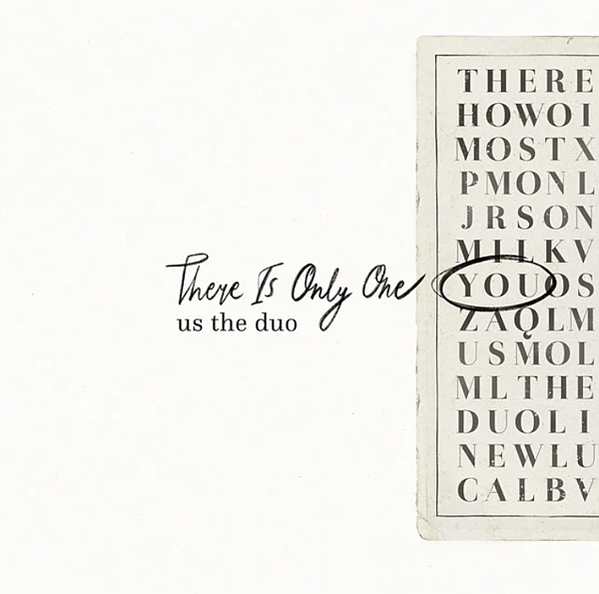 There Is Only One
us the duo
THERE
HOWOI
MOSTX
PMONL
JRSON
MILKV
YOUOS
ZAQLM
USMOL
MLTHE
DUOLI
NEWLU
CALBV